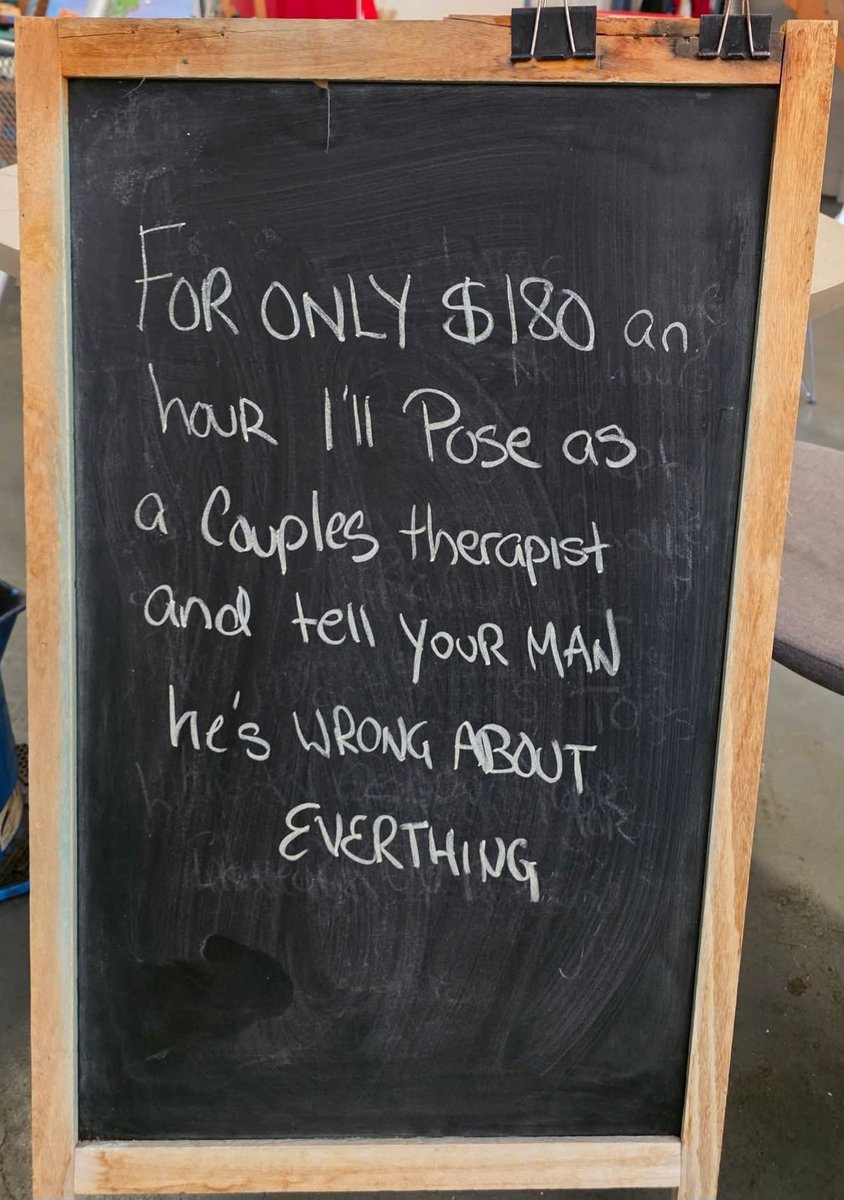 FOR ONLY $180 an
hour I'll Pose as
a Couples therapist
and tell YOUR MAN
he's WRONG ABOUT
EVERTHING